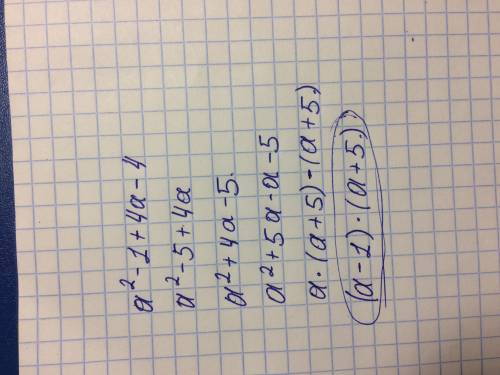 a²-1+4a-4
a²-5+4a
a²+4a-5.
a²+5a-a-5
a·(a+5)-(a+5)
(a-1)·(a+5)